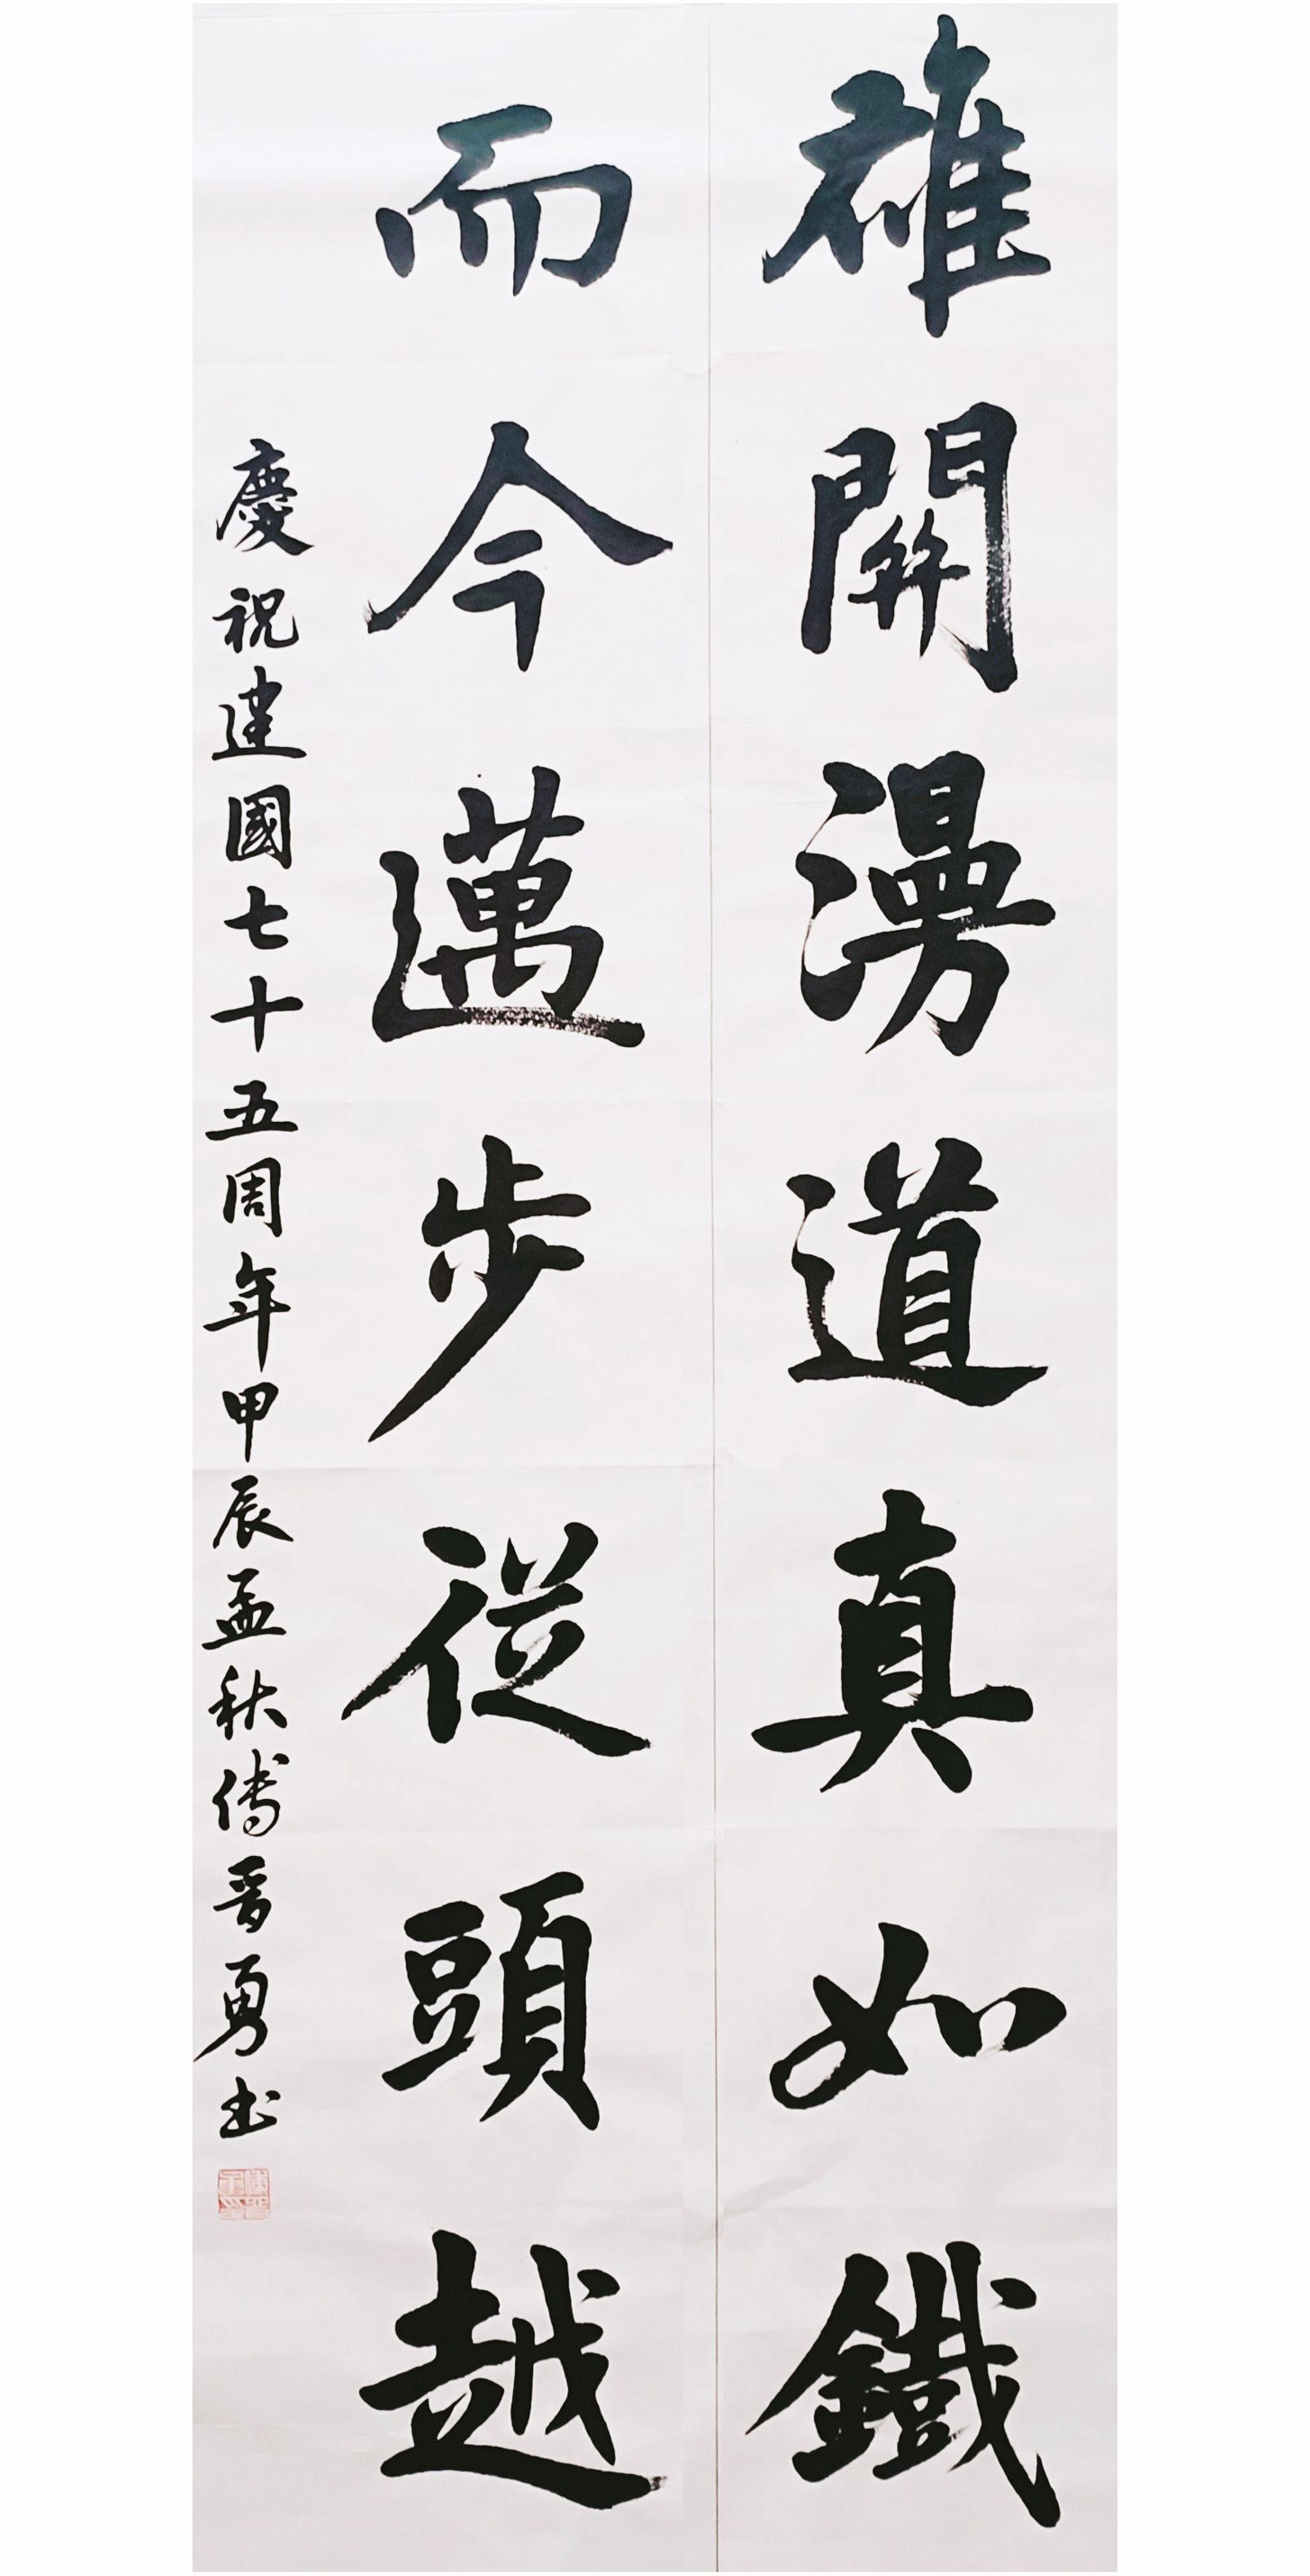 雄關漫道真如鐵
而今邁步從頭越
慶祝建國七十五周年甲辰孟秋傅晋勇书